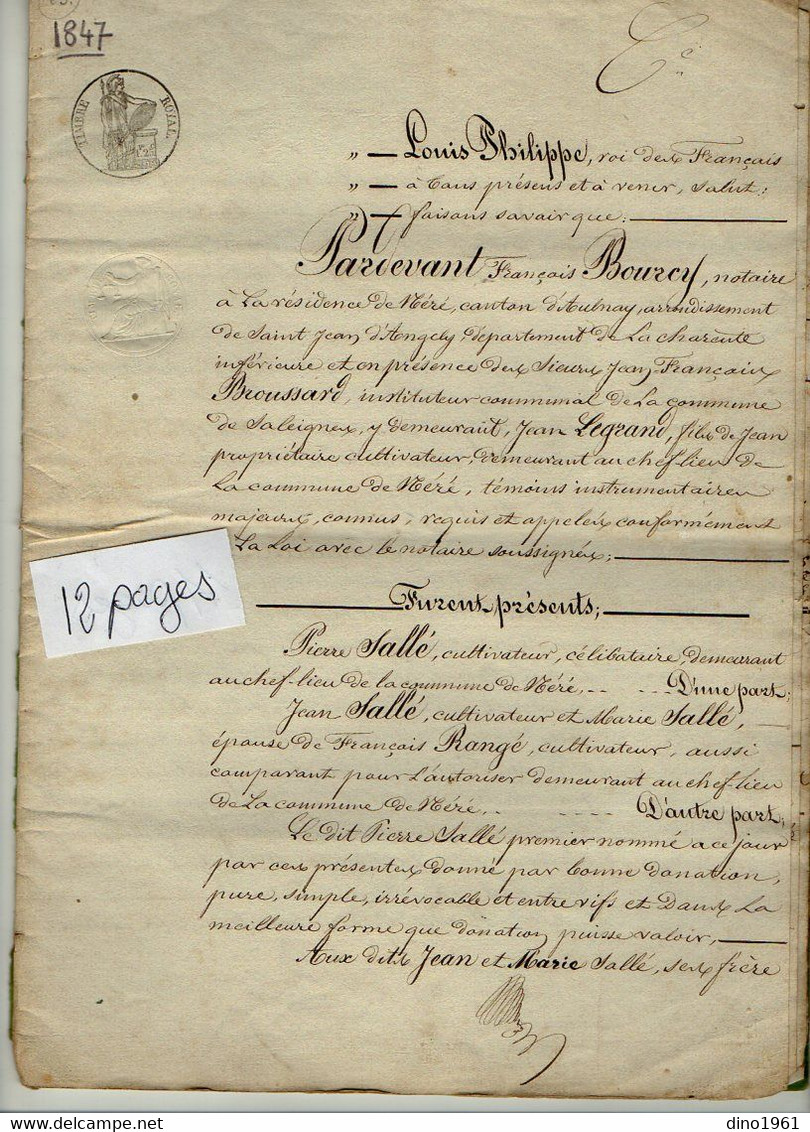 1847
TIMBRE ROYAL
„ — Louis Philippe, roi des Français
„ — à tous présens et à venir, salut;
„ — faisons savoir que:
Pardevant François Bourcy, notaire
à La résidence de Néré, canton d'Aulnay, arrondissement
de Saint Jean d'Angély, département de La charente
inférieure et en présence des Sieurs Jean François
Broussard, instituteur communal de La commune
de Saleignes, y demeurant, Jean Legrand, fils de Jean
propriétaire cultivateur, demeurant au chef-lieu de
La commune de Néré, témoins instrumentaires
majeurs, connus, requis et appelés conformément
à La Loi avec le notaire soussignés;
12 pages
Furent présents;
Pierre Sallé, cultivateur, célibataire, demeurant
au chef-lieu de la commune de Néré, D'une part;
Jean Sallé, cultivateur et Marie Sallé,
épouse de François Rangé, cultivateur, aussi
comparant pour L'autoriser demeurant au chef-lieu
de La commune de Néré, D'autre part;
Le dit Pierre Sallé premier nommé a ce jour
par ces présentes donné par bonne donation,
pure, simple, irrévocable et entre vifs et Dans La
meilleure forme que donation puisse valoir,
Aux dits Jean et Marie Sallé, ses frère
dino1961